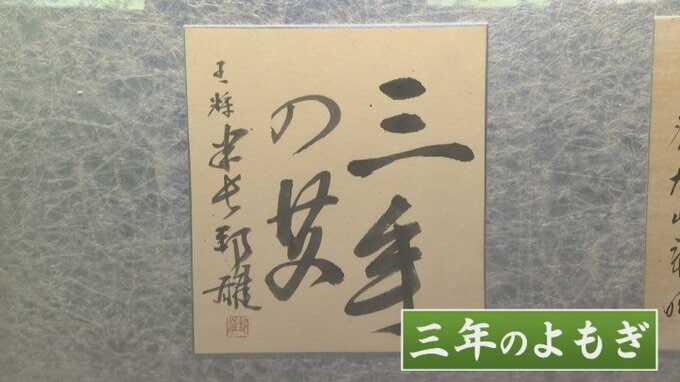 三年
の艾
王将 米長邦雄
三年のよもぎ